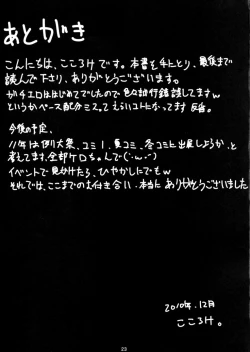 あとがき
こんにちは、こころけです。本書を手にとり、最後まで
読んで下さり、ありがとうございます。
ガチエロははじめてでしたので色々試行錯誤してますw
というかペース配分ミスってえらいコトになってます 反省。
今後の予定、
11年は例大祭、コミ1、夏コミ、冬コミに出展しようか、と
考えてます。全部ケロちゃんで(・ω・)
イベントで見かけたら、ひやかしにでもw
それでは、ここまでのお付き合い、本当にありがとうございました
2010年、12月
こころけ。
23